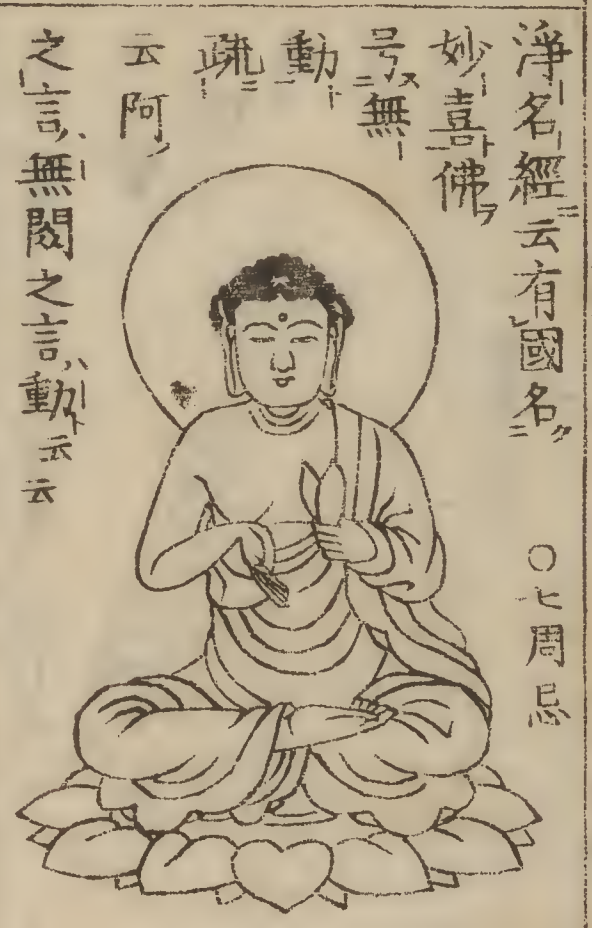 淨名經云有國名
○七周忌
妙喜佛
号無
動
疏
云阿
之言無閦之言動云云